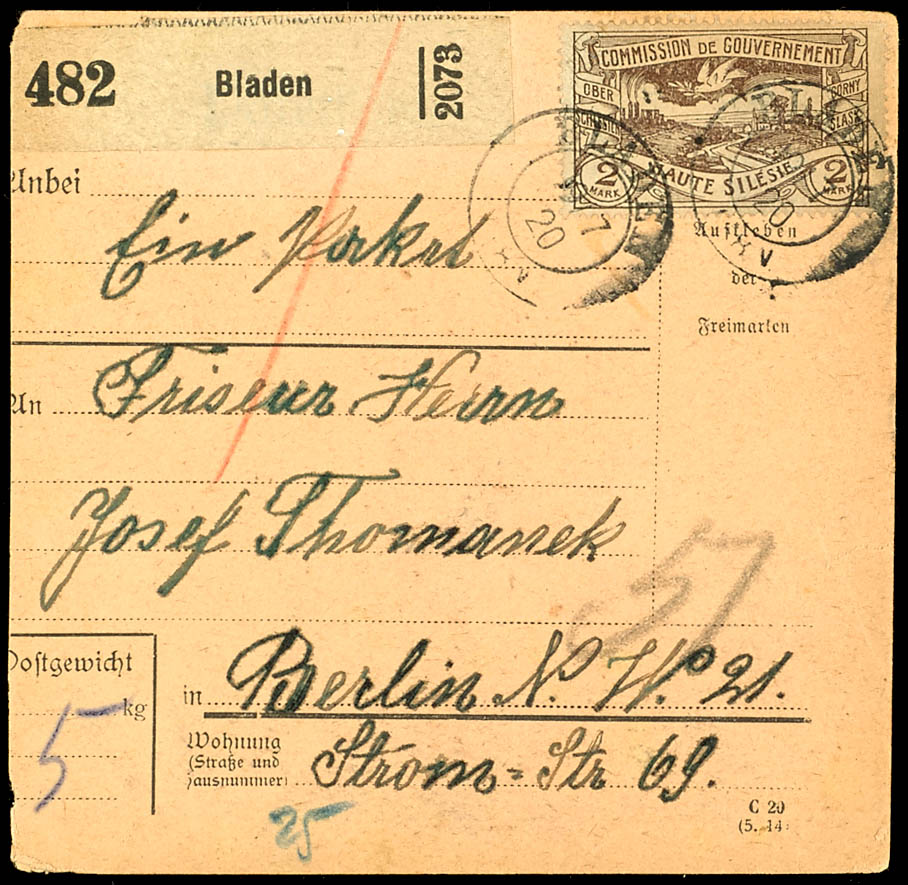 482 Bladen 2073
COMMISSION DE GOUVERNEMENT
OBER GORNY
SCHLESIEN SLASK
2 MARK HAUTE SILESIE 2 MARK
BLADEN
7
20
BLADE
20
Anbei
Ein Paket
Aufkleben
der
Freimarken
An Friseur Herrn
Josef Thomanek
57
Postgewicht
5 kg
in Berlin N. W. 21.
Wohnung
(Straße und
Hausnummer) Strom-Str 69.
25
C 29
(5. 14)